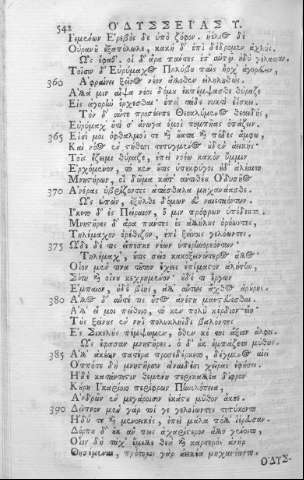 542 Ο᾿ΔΥΣΣΕΙΑΣ Υ.
Ἱεμένων Ἔρεβος δὲ ὑπὸ ζόφον· ἠέλιος δὲ
Οὐρανοῦ ἐξαπόλωλε, κακὴ δ' ἐπιδέδρομεν ἀχλύς.
Ὣς ἔφαθ'· οἱ δ' ἄρα πάντες ἐπ' αὐτῷ ἡδὺ γέλασαν.
Τοῖσιν δ' Εὐρύμαχος Πολύβου παῖς ἦρχ' ἀγορεύειν,
360 Ἀφραίνει ξεῖνος νέον ἄλλοθεν εἰληλουθώς.
Ἀλλά μιν αἶψα νέοι δόμου ἐκπέμψασθε θύραζε
Εἰς ἀγορὴν ἔρχεσθαι· ἐπεὶ τάδε νυκτὶ ἐΐσκει.
Τὸν δ' αὖτε προσέειπε Θεοκλύμενος θεοειδής,
Εὐρύμαχ', οὔ τί σ' ἄνωγα ἐμοὶ πομπῆας ὀπάζειν.
365 Εἰσί μοι ὀφθαλμοί τε καὶ οὔατα καὶ πόδες ἄμφω,
Καὶ νόος ἐν στήθεσσι τετυγμένος οὐδὲν ἀεικής·
Τοῖς ἔξειμι θύραζε, ἐπεὶ νοέω κακὸν ὔμμιν
Ἐρχόμενον, τό κεν οὔτις ὑπεκφύγοι οὐδ' ἀλέοιτο
Μνηστήρων, οἳ δῶμα κατ' ἀντιθέου Ὀδυσῆος
370 Ἀνέρας ὑβρίζοντες ἀτάσθαλα μηχανάασθε.
Ὣς εἰπὼν, ἐξῆλθε δόμων εὖ ναιεταόντων·
Ἵκετο δ' ἐς Πείραιον, ὅ μιν πρόφρων ὑπέδεκτο.
Μνηστῆρες δ' ἄρα πάντες ἐς ἀλλήλους ὁρόωντες,
Τηλέμαχον ἐρέθιζον, ἐπὶ ξείνοις γελόωντες.
375 Ὧδε δέ τις εἴπεσκε νέων ὑπερηνορεόντων·
Τηλέμαχ', οὔτις σεῖο κακοξεινώτερος ἄλλος·
Οἷον μέν τινα τοῦτον ἔχεις ἐπίμαστον ἀλήτην,
Σίτου καὶ οἴνου κεχρημένον· οὐδέ τι ἔργων
Ἔμπαιον, οὐδὲ βίης, ἀλλ' αὔτως ἄχθος ἀρούρης.
380 Ἄλλος δ' αὖτέ τις οὗτος ἀνέστη μαντεύεσθαι.
Ἀλλ' εἴ μοι πείθοιο, τό κεν πολὺ κέρδιον εἴη·
Τοὺς ξείνους ἐν νηῒ πολυκληῗδι βαλόντες
Ἐς Σικελοὺς πέμψωμεν, ὅθεν κέ τοι ἄξιον ἄλφοι.
Ὣς ἔφασαν μνηστῆρες. ὁ δ' οὐκ ἐμπάζετο μύθων.
385 Ἀλλ' ἀκέων πατέρα προσεδέρκετο, δέγμενος αἰεὶ
Ὁππότε δὴ μνηστῆρσιν ἀναιδέσι χεῖρας ἐφήσει.
Ἡ δὲ κατάντηστιν θεμένη περικαλλέα δίφρον
Κούρη Ἰκαρίοιο περίφρων Πηνελόπεια,
Ἀνδρῶν ἐν μεγάροισιν ἑκάστου μῦθον ἄκουε.
390 Δεῖπνον μὲν γάρ τοί γε γελοίωντες τετύκοντο
Ἡδύ τε καὶ μενοεικὲς, ἐπεὶ μάλα πόλλ' ἱέρευσαν.
Δόρπου δ' οὐκ ἄν πως ἀχαρίστερον ἄλλο γένοιτο,
Οἷον δὴ τάχ' ἔμελλε θεὰ καὶ καρτερὸς ἀνὴρ
Θησέμεναι, πρότεροι γὰρ ἀεικέα μηχανόωντο.
Ο᾿ΔΥΣ-